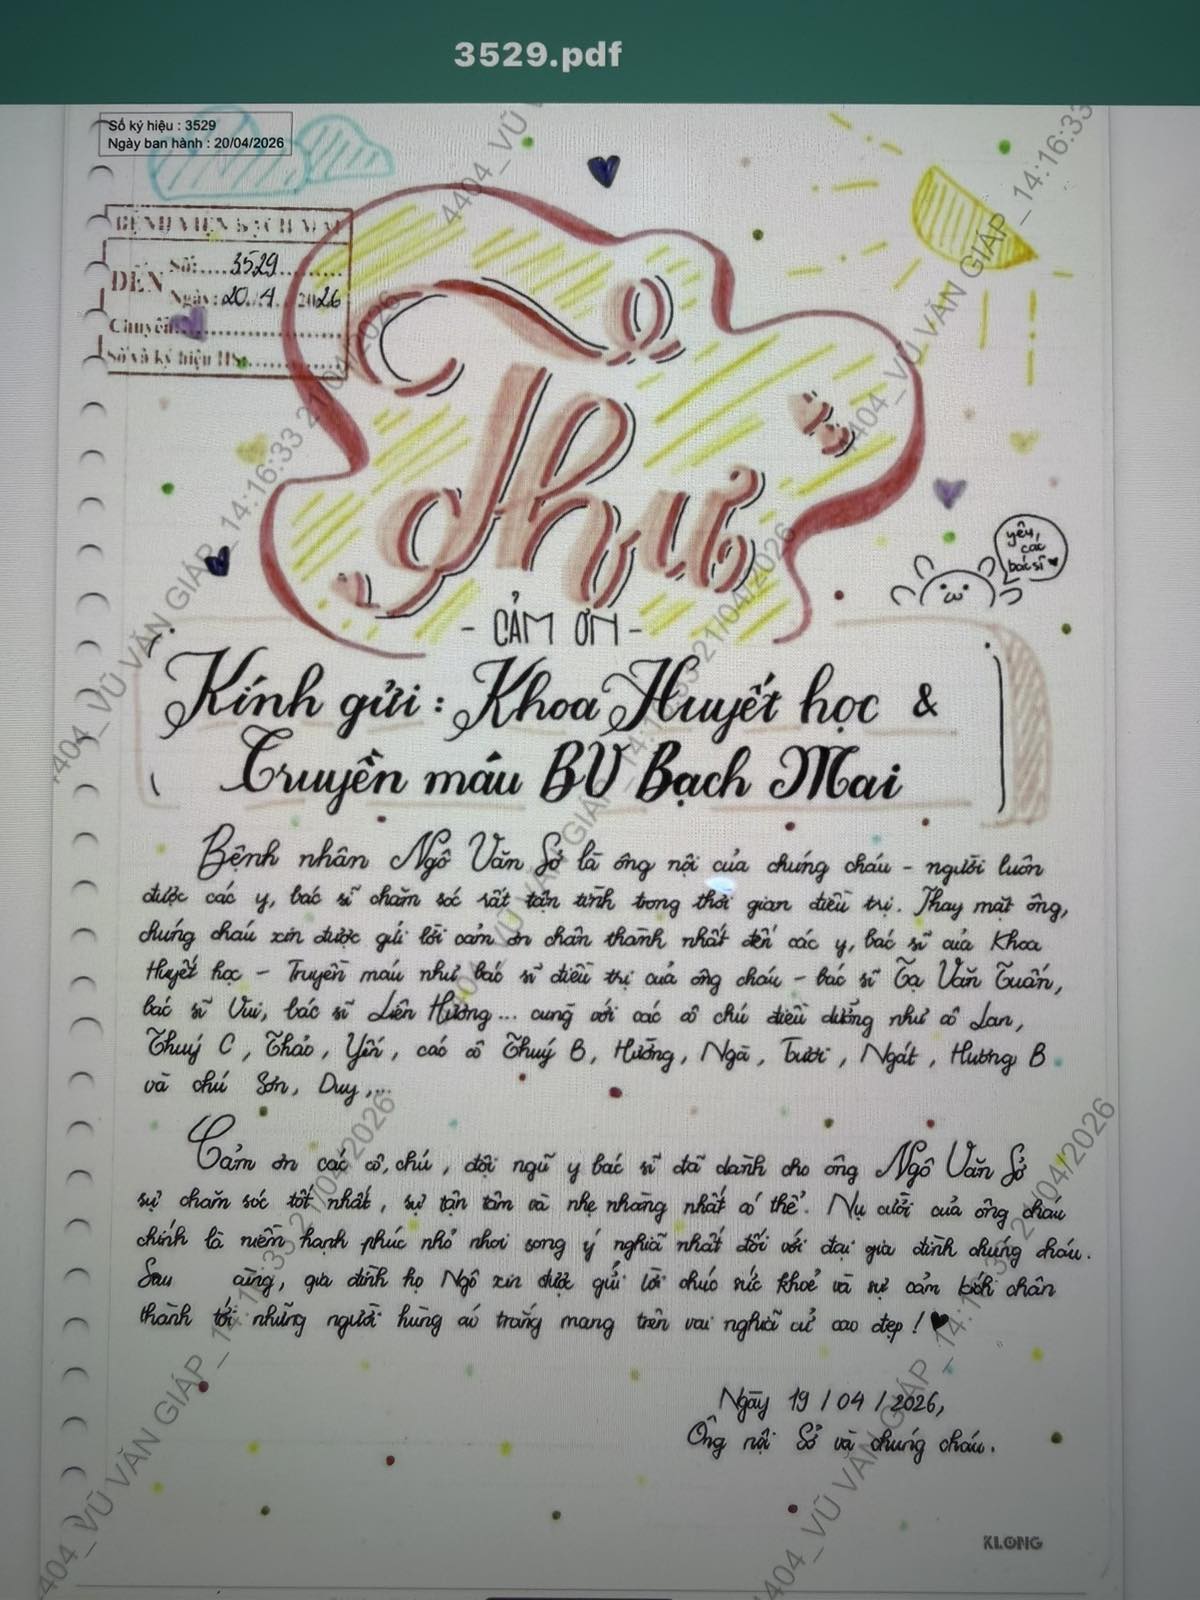 3529.pdf
Số ký hiệu : 3529
Ngày ban hành : 20/04/2026
BỆNH VIỆN BẠCH MAI
ĐẾN
Số:.....3529
Ngày: 20/4/2026
Chuyển:
Số và ký hiệu HS:
Thư
yêu
các
bác sĩ
- CẢM ƠN -
Kính gửi : Khoa Huyết học &
Truyền máu BV Bạch Mai
Bệnh nhân Ngô Văn Sở là ông nội của chúng cháu - người luôn
được các y, bác sĩ chăm sóc rất tận tình trong thời gian điều trị. Thay mặt ông,
chúng cháu xin được gửi lời cảm ơn chân thành nhất đến các y, bác sĩ của Khoa
Huyết học - Truyền máu như bác sĩ điều trị của ông cháu - bác sĩ Tạ Văn Tuấn,
bác sĩ Vui, bác sĩ Liên Hương... cùng với các cô chú điều dưỡng như cô Lan,
Thuý C, Thảo, Yến, các cô Thuý B, Hường, Nga, Tươi, Ngát, Hương B
và chú Sơn, Duy,...
Cảm ơn các cô, chú, đội ngũ y bác sĩ đã dành cho ông Ngô Văn Sở
sự chăm sóc tốt nhất, sự tận tâm và nhẹ nhàng nhất có thể. Nụ cười của ông cháu
chính là niềm hạnh phúc nhỏ nhoi song ý nghĩa nhất đối với đại gia đình chúng cháu.
Sau cùng, gia đình họ Ngô xin được gửi lời chúc sức khoẻ và sự cảm kích chân
thành tới những người hùng áo trắng mang trên vai nghĩa cử cao đẹp !
Ngày 19/04/2026,
Ông nội Sở và chúng cháu.
KLONG
4404_VŨ VĂN GIÁP_14:16:33 21/04/2026